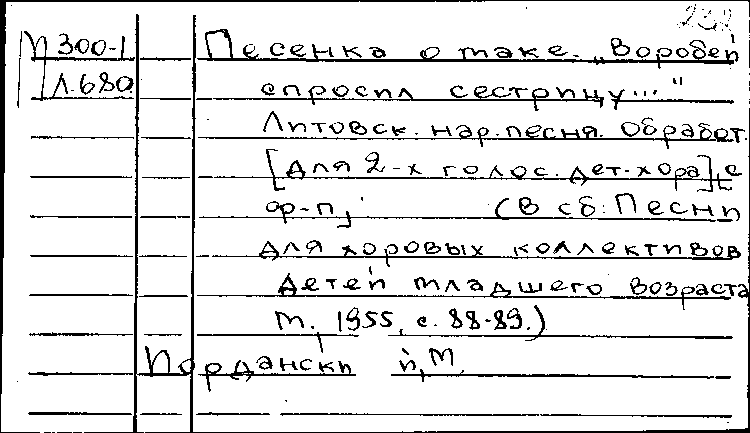 232
П 300-1 Песенка о маке. „Воробей
Л.680 спросил сестрицу..."
Литовск. нар. песня. Обработ.
[для 2-х голос. дет. хора] с
ф-п, (В сб: Песни
для хоровых коллективов
детей младшего возраста
М., 1955, с. 88-89.)
Иорданский, М.